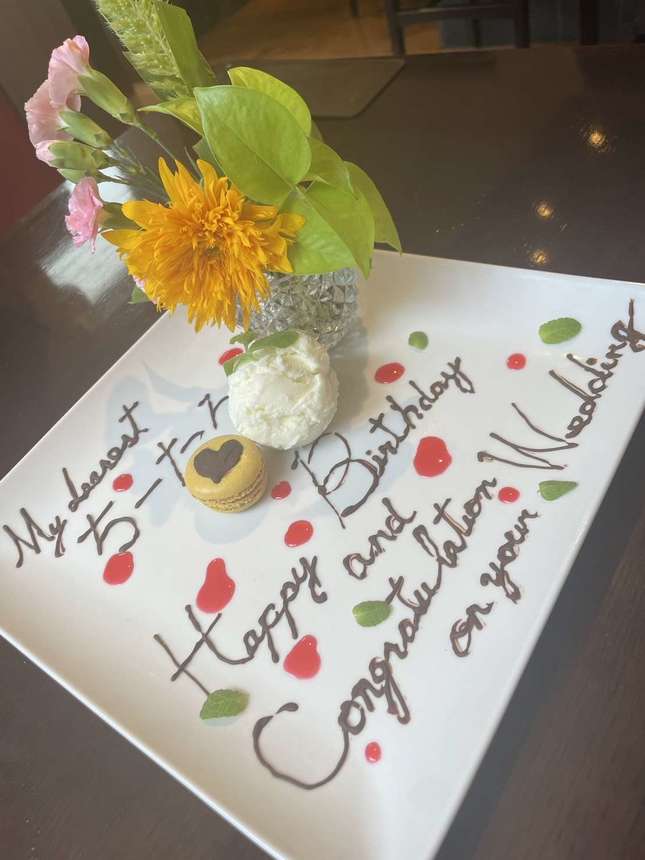 My dessert
ちーたー
Happy Birthday
and
Congratulation
on your Wedding